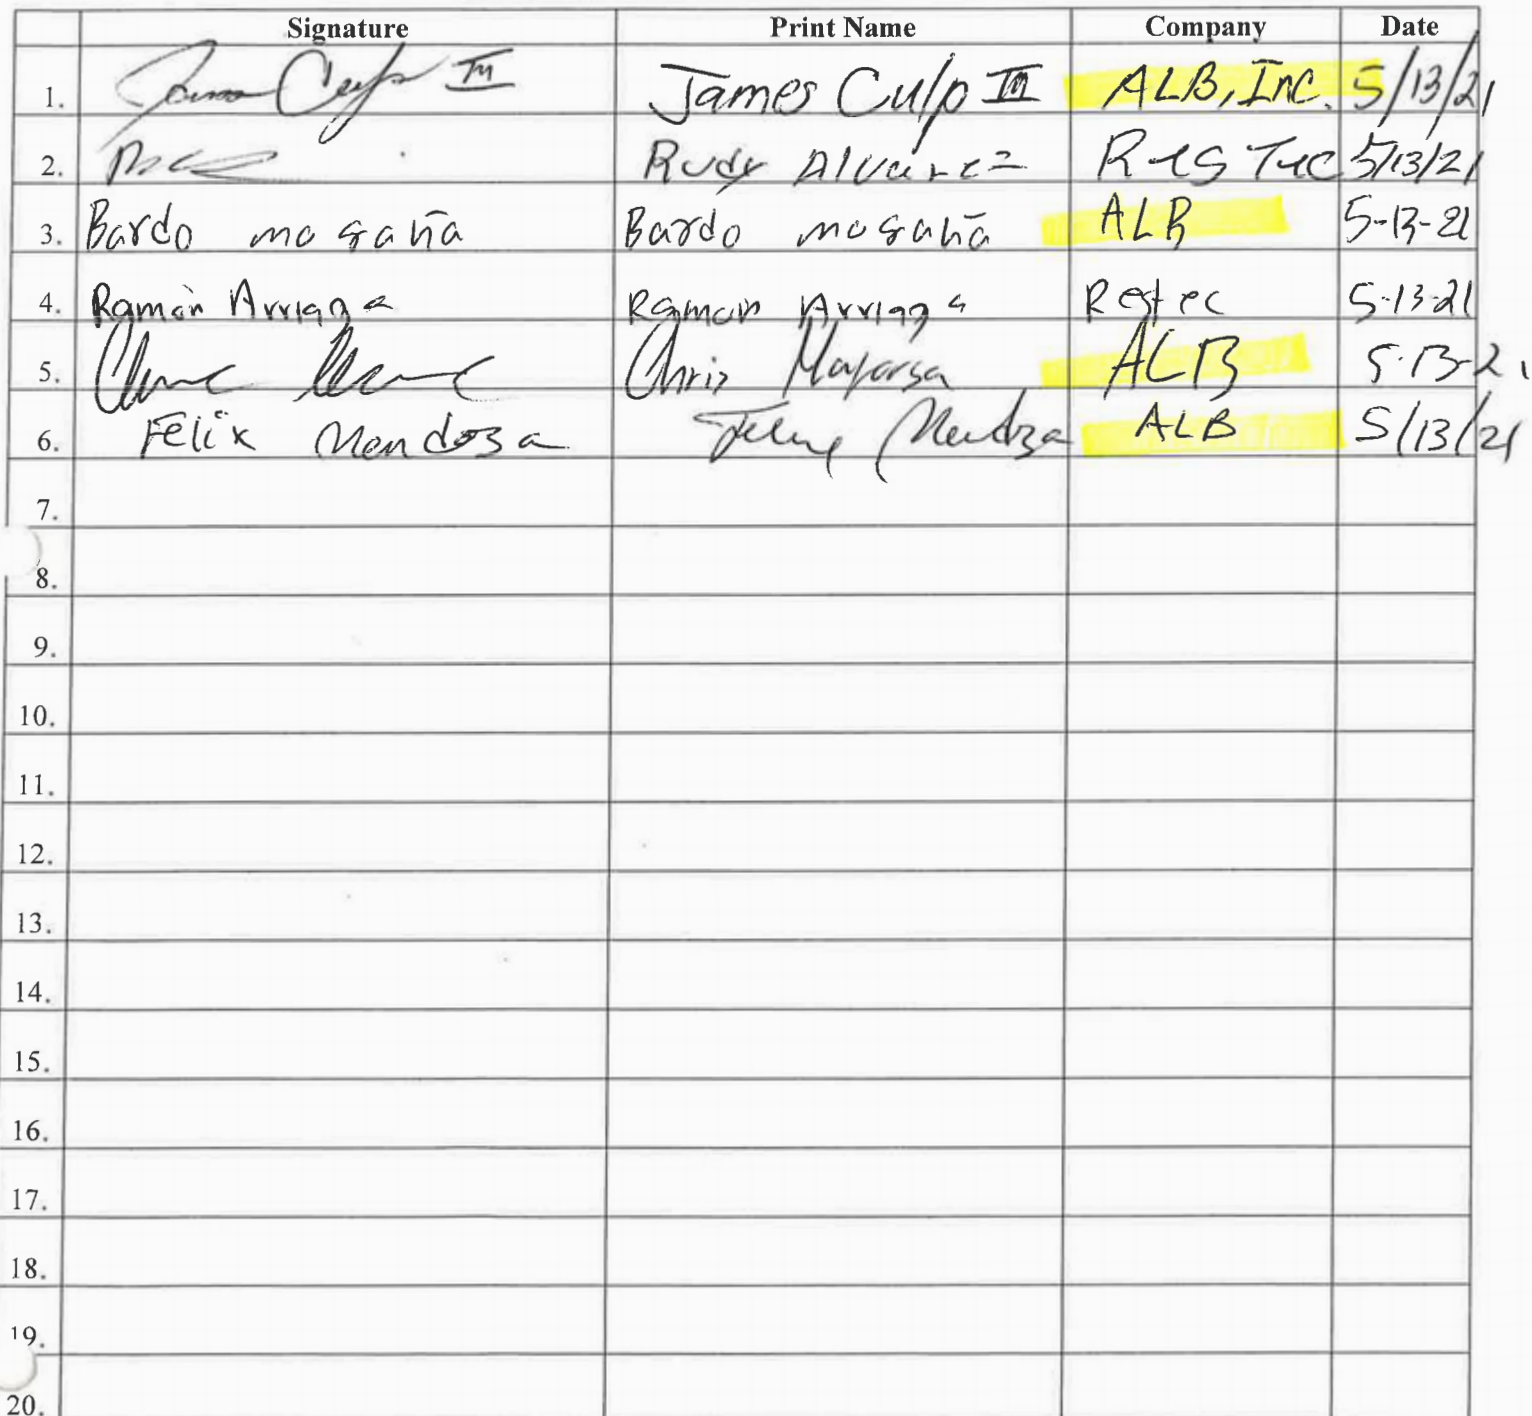 Signature Print Name Company Date
1. James Culp III James Culp III ALB, Inc. 5/13/21
2. Rudy Alvarez ResTec 5/13/21
3. Bardo magaña Bardo magaña ALB 5-13-21
4. Ramón Arriaga Ramon Arriaga Restec 5-13-21
5. Chris ALB 5-13-21
6. Felix Mendoza Mendoza ALB 5/13/21
7.
8.
9.
10.
11.
12.
13.
14.
15.
16.
17.
18.
19.
20.